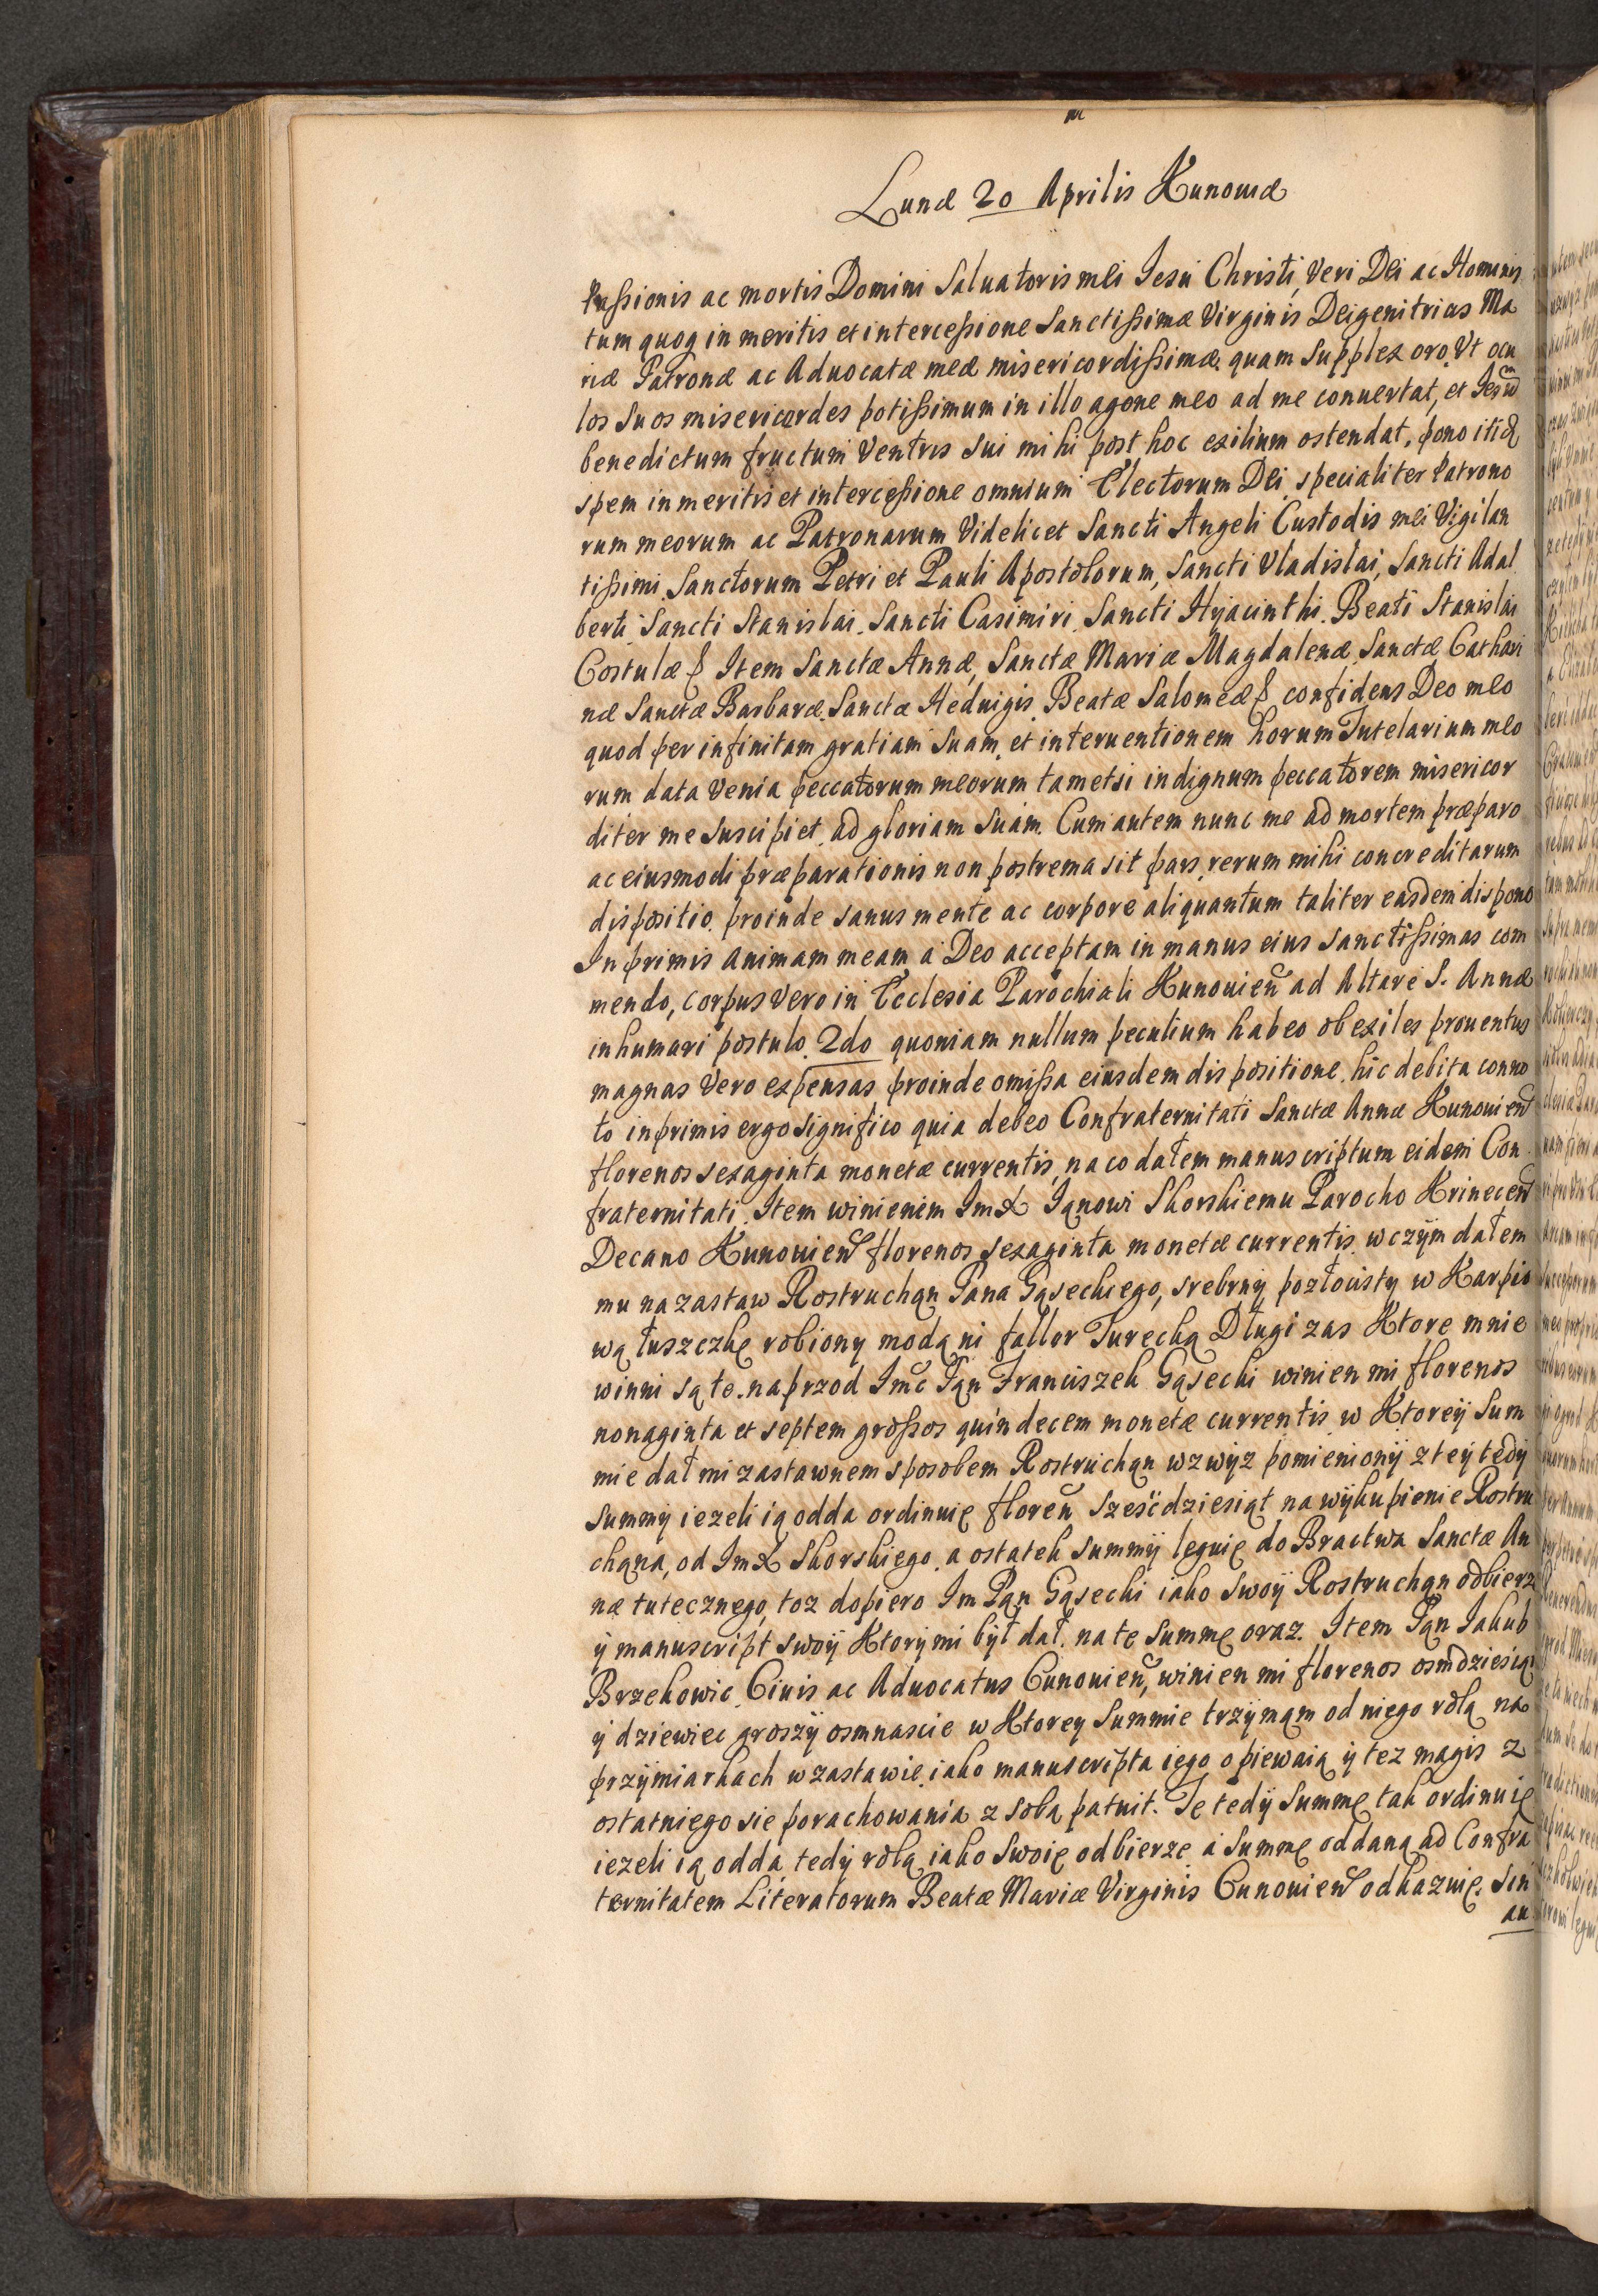 Lunæ 20 Aprilis Kunouiæ
Passionis ac mortis Domini Saluatoris mei Iesu Christi, Veri Dei ac Hominis
tum quoq in meritis et intercessione Sanctissimæ Virginis Deigenitricis Ma
riæ Patronæ ac Aduocatæ meæ misericordissimæ. quam Supplex oro. Vt ocu
los Suos misericordes potissimum in illo agone meo ad me conuertat, et Iesum
benedictum fructum Ventris Sui mihi post hoc exilium ostendat, pono itidẽ
spem in meritis et intercessione omnium Electorum Dei, specialiter Patrono
rum meorum ac Patronarum Videlicet Sancti Angeli Custodis mei Vigilan
tissimi. Sanctorum Petri et Pauli Apostolorum, Sancti Vladislai, Sancti Adal
berti Sancti Stanislai. Sancti Casimiri. Sancti Hyacinthi. Beati Stanislai
Costulæ & Item Sanctæ Annæ, Sanctæ Mariæ Magdalenæ, Sanctæ Cathari
næ Sanctæ Barbaræ. Sanctæ Heduigis. Beatæ Salomeæ & confidens Deo meo
quod per infinitam gratiam Suam, et interuentionem horum Tutelarium meo
rum data Venia peccatorum meorum tametsi indignum peccatorem misericor
diter me Suscipiet, ad gloriam Suam. Cum autem nunc me ad mortem præparo
ac eiusmodi præparationis non postrema sit pars, rerum mihi concreditarum
dispositio. proinde sanus mente ac corpore aliquantum taliter easdem dispono
In primis Animam meam à Deo acceptam in manus eius Sanctissimas com
mendo, corpus Vero in Ecclesia Parochiali Kunouieñ ad Altare S. Annæ
inhumari postulo. 2do quoniam nullum peculium habeo ob exiles prouentus
magnas Vero expensas proinde omissa eiusdem dispositione. hic debita conno
to inprimis ergo significo quia debeo Confraternitati Sanctæ Annæ Kunouieñ
florenos sexaginta monetæ currentis, na co dałem manuscriptum eidem Con
fraternitati. Item winienem ImX Iąnowi Skorskiemu Parocho Krineceñ
Decano Kunouieñ florenos sexaginta monetæ currentis. w czÿm dałem
mu na zastaw Rostruchąn Pana Gąseckiego, srebrny pozłocisty w Karpio
wą łuszczkę robiony modą ni fallor Turecką Długi zas Ktore mnie
winni są te. naprzod Imc Pąn Franciszek Gąsecki winien mi florenos
nonaginta et septem grossos quindecem monetæ currentis w Ktoreÿ Sum
mie dał mi zastawnem sposobem Rostruchąn wzwÿz pomienionÿ z teÿ tedÿ
Summÿ iezeli ią odda ordinuię floreñ szescdziesiąt na wÿkupienie Rostru
chąna, od ImX Skorskiego. a ostatek Summÿ leguię do Bractwa Sanctæ An
næ tutecznego, toz dopiero Im Pąn Gąsecki iako Swoÿ Rostruchąn odbierz
ÿ manuscript swoÿ Ktorÿ mi bÿł dał. na te Summę oraz. Item Pąn Iakub
Brzekowic. Ciuis ac Aduocatus Cunouieñ, winien mi florenos osmdziesiąt
ÿ dziewiec groszÿ osmnascie w Ktorey Summie trzÿmąm od niego rolą na
przÿmiarkach w zastawie. iako manuscripta iego opiewaią ÿ tez magis z
ostatniego sie porachowania z sobą patuit. Te tedÿ Summę tak ordinuię
iezeli ią odda, tedÿ rolą iako Swoię odbierze a Summę oddaną ad Confra
ternitatem Literatorum Beatæ Mariæ Virginis Cunouieñ odkazuię. Sin
au